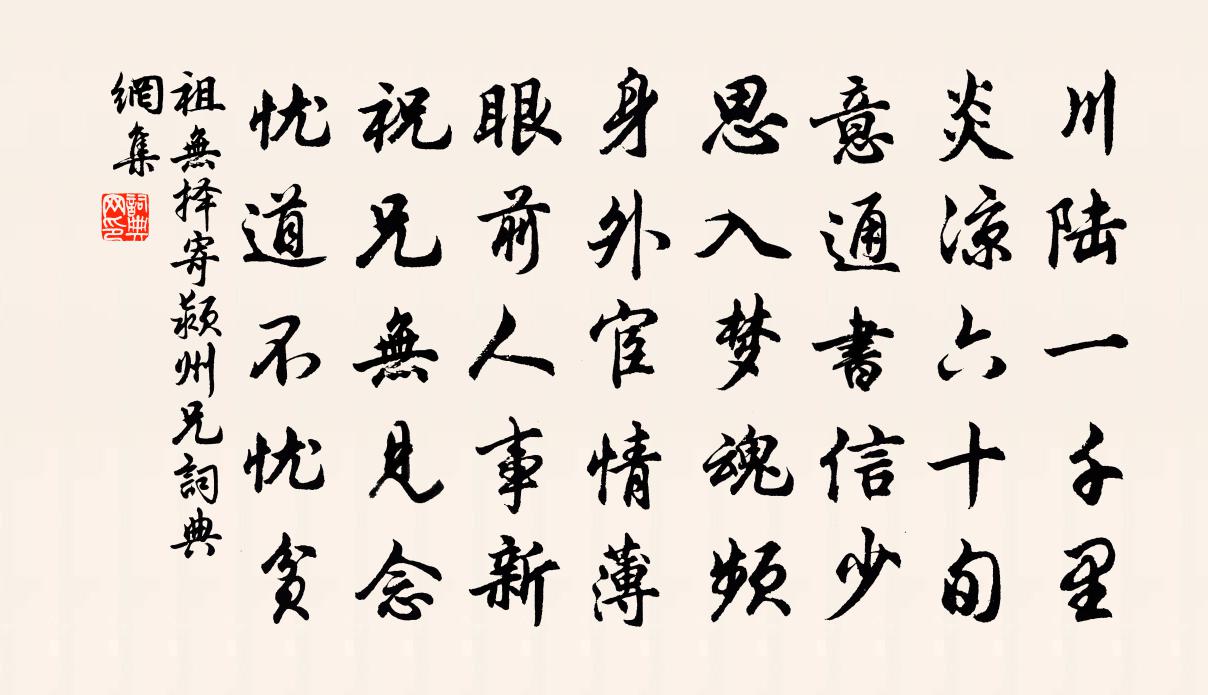 川陆一千里
炎凉六十旬
意通書信少
思入梦魂频
身外宦情薄
眼前人事新
祝兄無見念
忧道不忧贫
祖無择寄颍州兄詞典
網集
詞典
网印